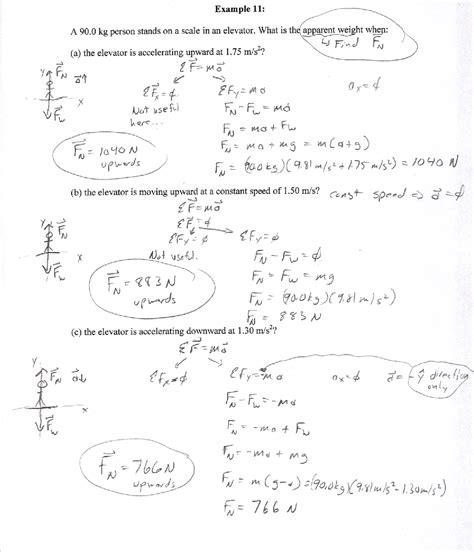 Example 11:
A 90.0 kg person stands on a scale in an elevator. What is the apparent weight when:
↳ Find F⃗_N
(a) the elevator is accelerating upward at 1.75 m/s²?
ΣF⃗ = ma⃗
y F⃗_N a⃗↑
x
F⃗_w
ΣF⃗ₓ = ϕ
Not useful
here...
ΣF_y = ma
aₓ = ϕ
F_N - F_w = ma
F_N = ma + F_w
F_N = ma + mg = m(a+g)
F_N = (90.0kg)(9.81 m/s² + 1.75 m/s²) = 1040 N
F⃗_N = 1040 N
upwards
(b) the elevator is moving upward at a constant speed of 1.50 m/s?
const speed ⇒ a⃗ = ϕ
ΣF⃗ = ma⃗
ΣF⃗ = ϕ
y F⃗_N
x
F⃗_w
ΣFₓ = ϕ
Not useful.
ΣF_y = ϕ
F_N - F_w = ϕ
F_N = F_w = mg
F_N = (90.0kg)(9.81 m/s²)
F_N = 883 N
F⃗_N = 883 N
upwards
(c) the elevator is accelerating downward at 1.30 m/s²?
ΣF⃗ = ma⃗
y F⃗_N a⃗↓
x
F⃗_w
ΣFₓ = ϕ
ΣF_y = -ma
aₓ = ϕ
a⃗ = -ŷ direction
only
F_N - F_w = -ma
F_N = -ma + F_w
F_N = -ma + mg
F_N = m(g-a) = (90.0kg)(9.81 m/s² - 1.30 m/s²)
F_N = 766 N
F⃗_N = 766 N
upwards